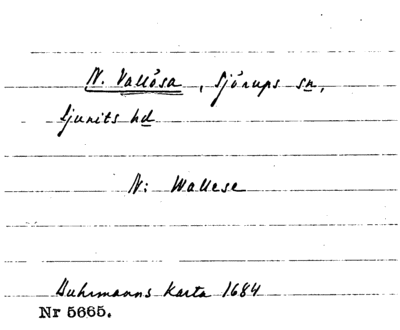 N. Vallösa, Sjörups sn,
Ljunits hd
N: Wallese
Buhrmanns Karta 1684
Nr 5665.